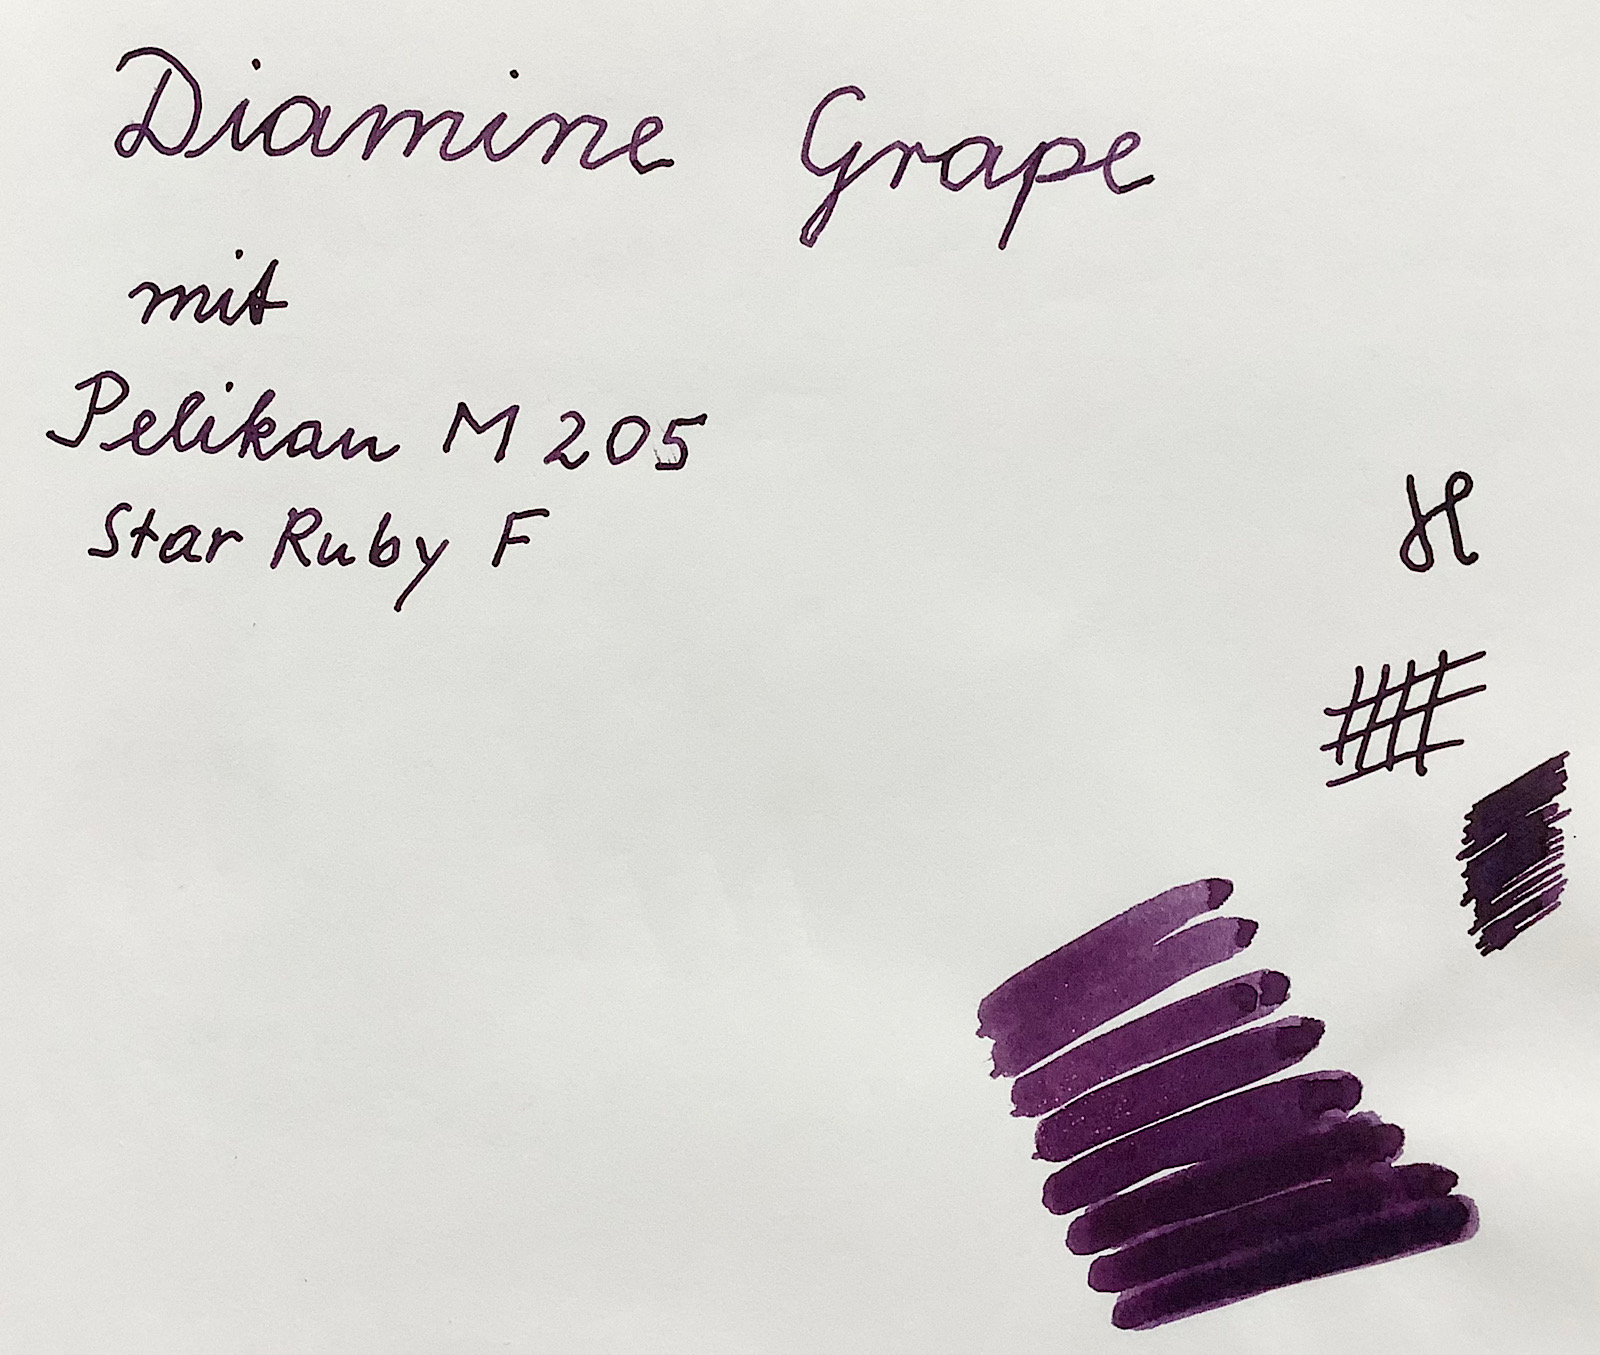 Diamine Grape
mit
Pelikan M 205
Star Ruby F